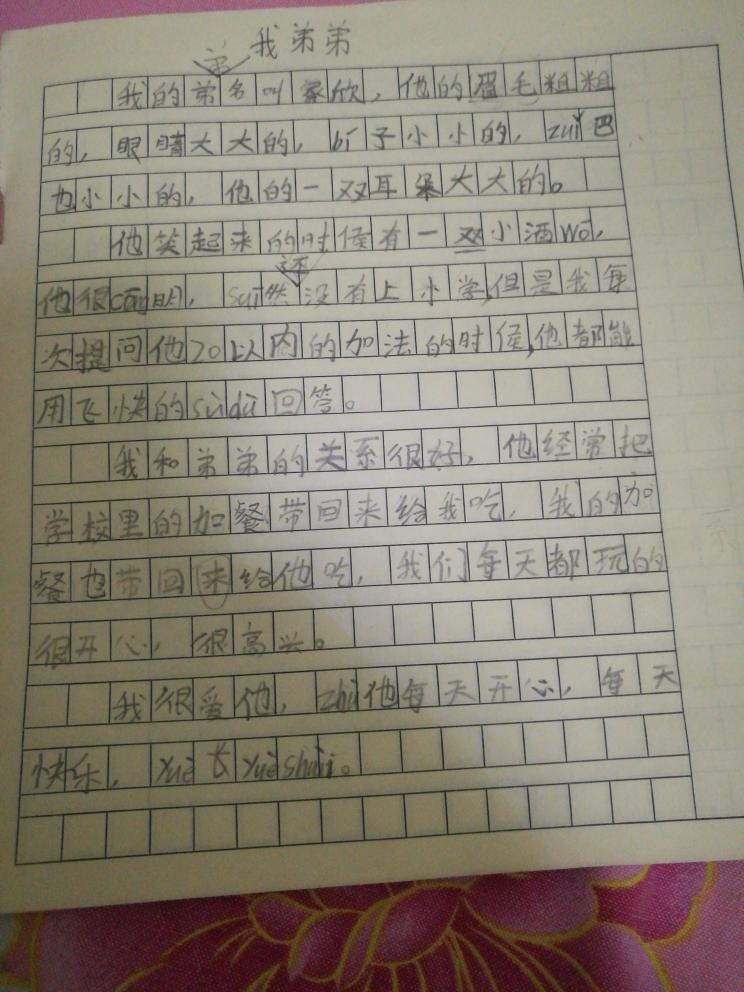 我弟弟
弟
我的弟名叫家欣，他的眉毛粗粗
的，眼睛大大的，bí子小小的，zuǐ巴
也小小的，他的一双耳朵大大的。
他笑起来的时候有一双小酒wō，
还
他很cōng明，suī然没有上小学，但是我每
次提问他20以内的加法的时候，他都能
用飞快的sùdù回答。
我和弟弟的关系很好，他经常把
学校里的加餐带回来给我吃，我的加
餐也带回来给他吃，我们每天都玩的
很开心，很高兴。
我很爱他，zhù他每天开心，每天
快乐，yuè长yuèshuài。